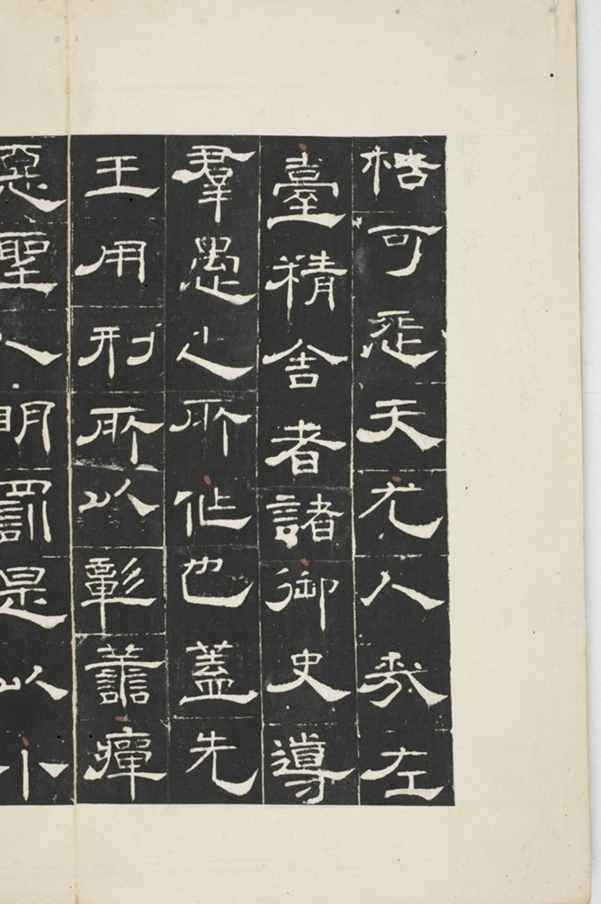 梏可悲天尤人哉左
臺精舍者諸御史導
羣愚之所作也蓋先
王用刑所以彰譱癉
惡聖人明罰是以小